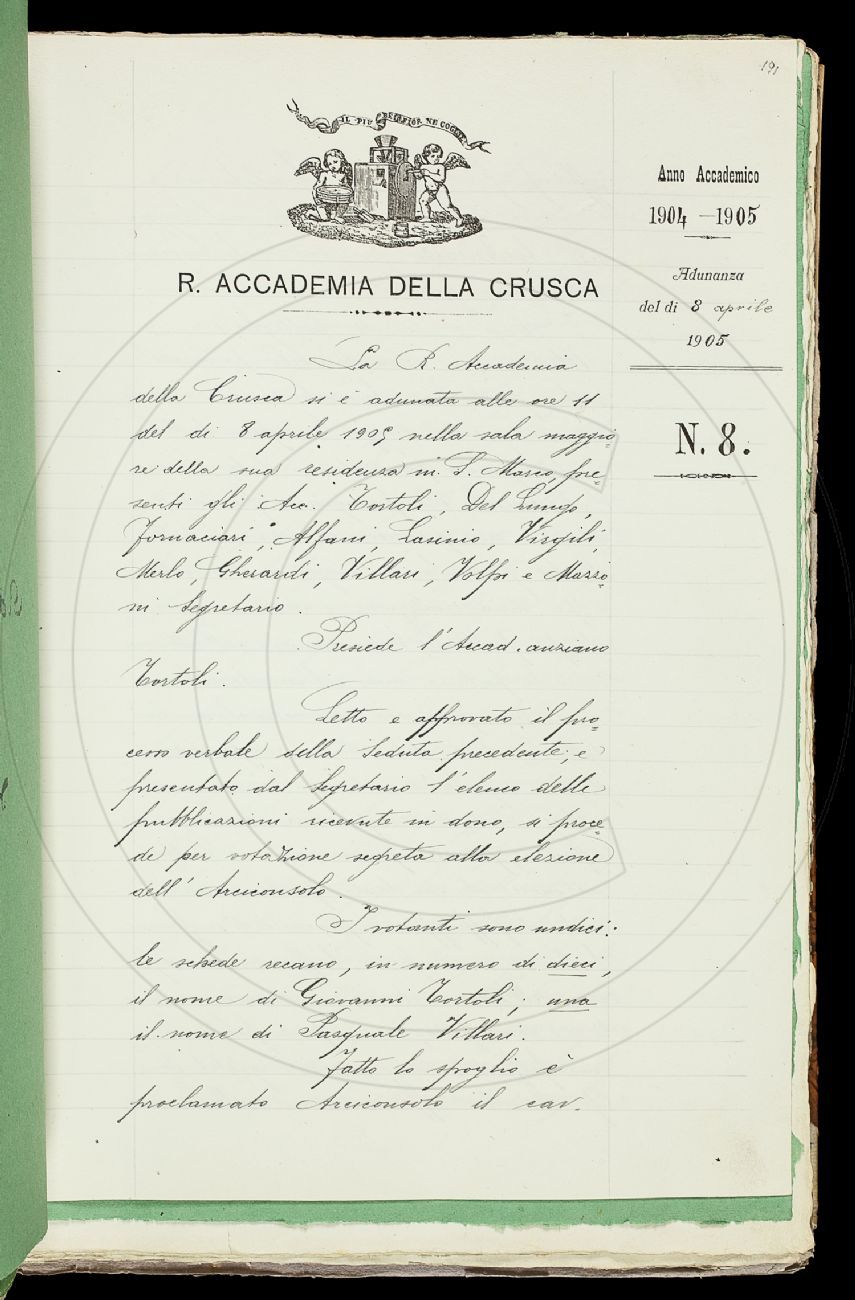 191
IL PIÙ BEL FIOR NE COGLIE
Anno Accademico
1904-1905
Adunanza
del dì 8 aprile
1905
N. 8.
R. ACCADEMIA DELLA CRUSCA
La R. Accademia
della Crusca si è adunata alle ore 11
del dì 8 aprile 1905 nella sala maggio-
re della sua residenza in S. Marco, pre-
senti gli Acc. Tortoli, Del Lungo,
Fornaciari, Alfani, Lasinio, Virgili,
Merlo, Gherardi, Villari, Volpi e Mazzo-
ni Segretario.
Presiede l'Accad. anziano
Tortoli.
Letto e approvato il pro-
cesso verbale della Seduta precedente, e
presentato dal Segretario l'elenco delle
pubblicazioni ricevute in dono, si proce-
de per votazione segreta alla elezione
dell'Arciconsolo.
I votanti sono undici:
le schede recano, in numero di dieci,
il nome di Giovanni Tortoli; una
il nome di Pasquale Villari.
Fatto lo spoglio è
proclamato Arciconsolo il cav.